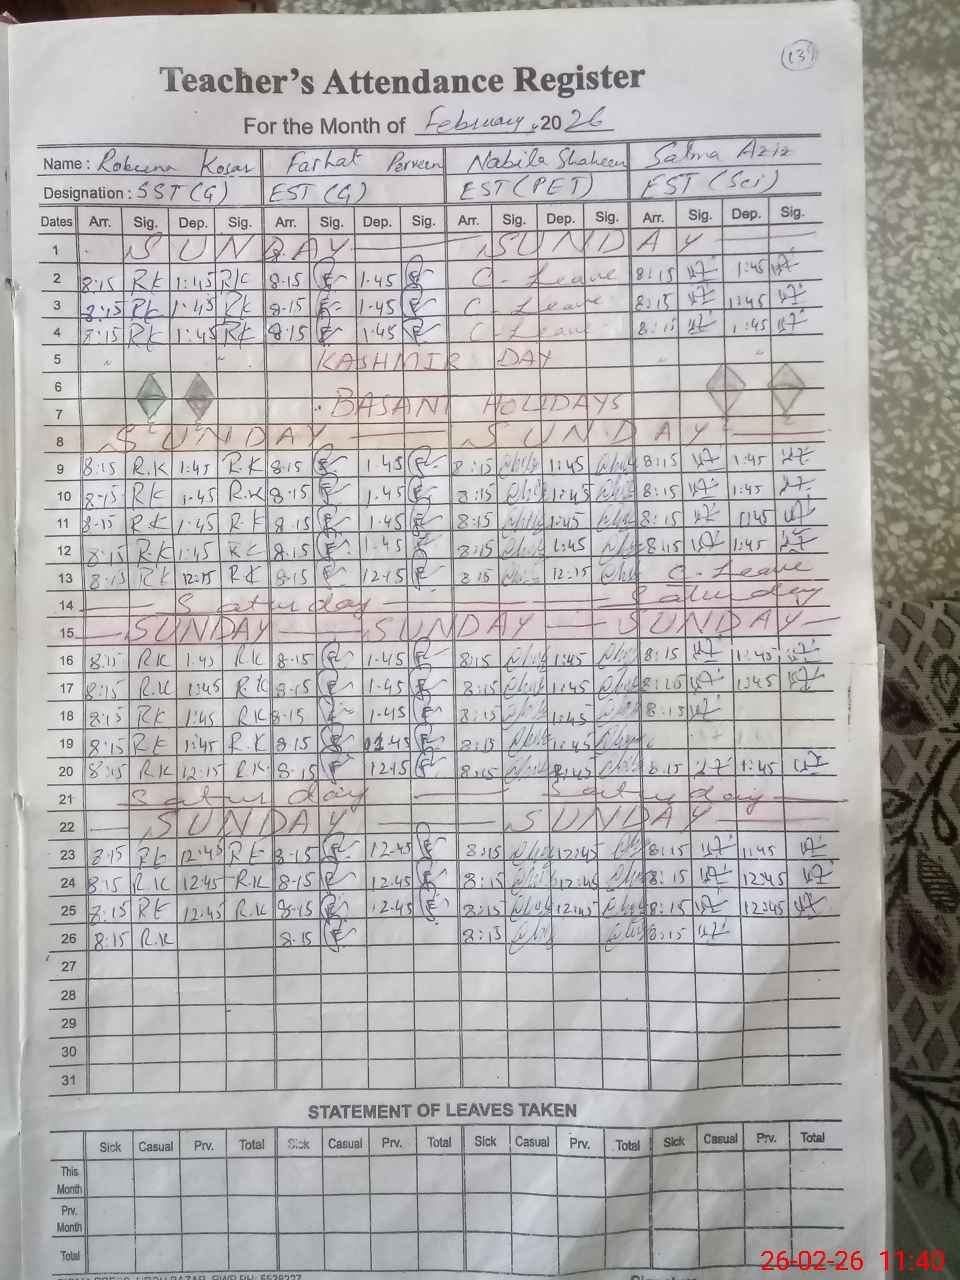 (13)
Teacher's Attendance Register
For the Month of February, 2026
Name: Robeena Kosar Farhat Perveen Nabila Shaheen Salma Aziz
Designation: SST (G) EST (G) EST (PET) EST (Sci)
Dates Arr. Sig. Dep. Sig. Arr. Sig. Dep. Sig. Arr. Sig. Dep. Sig. Arr. Sig. Dep. Sig.
1 SUNDAY SUNDAY
2 8:15 RK 1:45 RK 8-15 1-45 C-Leave 8:15 1:45
3 8:15 RK 1:45 RK 8-15 1-45 C-Leave 8:15 1:45
4 8:15 RK 1:45 RK 8:15 1-45 C-Leave 8:15 1:45
5 KASHMIR DAY
6
7 BASANT HOLIDAYS
8 SUNDAY SUNDAY
9 8:15 R.K 1:45 R.K 8-15 1-45 8:15 1:45 8:15 1:45
10 8:15 RK 1-45 R.K 8-15 1-45 8:15 1:45 8:15 1:45
11 8:15 RK 1:45 R.K 8-15 1-45 8:15 1:45 8:15 1:45
12 8:15 R.K 1:45 RK 8-15 1-45 8:15 1:45 8:15 1:45
13 8:15 RK 12:15 RK 8-15 12-15 8:15 12:15 C-Leave
14 Saturday Saturday
15 SUNDAY SUNDAY SUNDAY
16 8:15 R.K 1:45 R.K 8-15 1-45 8:15 1:45 8:15 1:45
17 8:15 R.K 1:45 R.K 8-15 1-45 8:15 1:45 8:15 1:45
18 8:15 RK 1:45 R.K 8-15 1-45 8:15 1:45 8:15
19 8:15 RK 1:45 R.K 8-15 8:15 1:45
20 8:15 R.K 12:15 R.K 8-15 12-15 8:15 8:15 1:45
21 Saturday Saturday
22 SUNDAY SUNDAY
23 8:15 RK 12:45 RK 8-15 12-45 8:15 12:45 8:15 1:45
24 8:15 R.K 12:45 R.K 8-15 12-45 8:15 12:45 8:15 12:45
25 8:15 RK 12:45 R.K 8-15 12-45 8:15 12:45 8:15 12:45
26 8:15 R.K 8-15 8:15 8:15
27
28
29
30
31
STATEMENT OF LEAVES TAKEN
Sick Casual Prv. Total Sick Casual Prv. Total Sick Casual Prv. Total Sick Casual Prv. Total
This Month
Prv. Month
Total
26-02-26 11:40